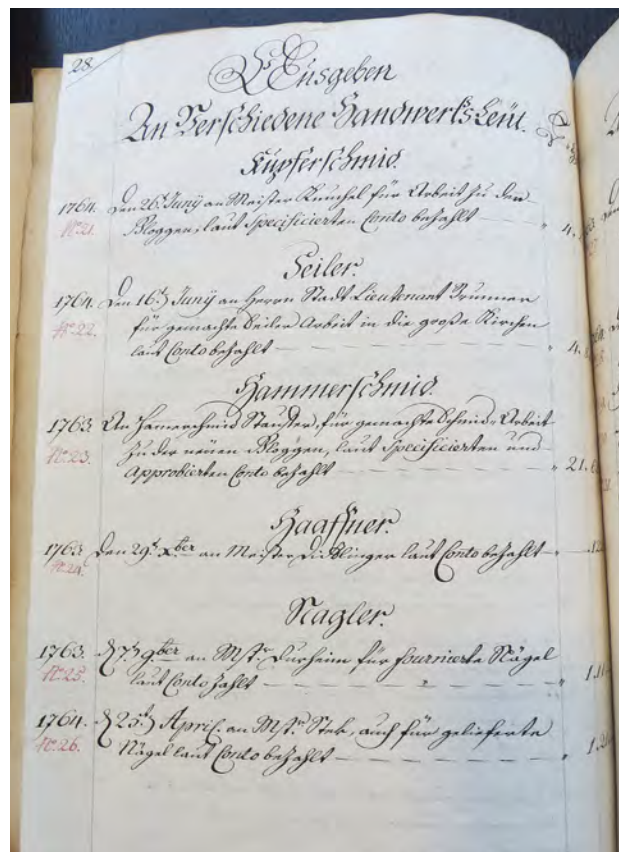 28.
Ausgeben
An Verschiedene Handwerks Leüt.
Kupferschmid.
1764. Den 26.t Junÿ an Meister Kunchel für Arbeit zu den
No: 21. Gloggen, laut Specificierten Conto bezahlt " 4.
Seiler.
1764. Den 16.t Junÿ an Herrn Stadt Lieutenant Brunner
No: 22. für gemachte Seiler Arbeit in die große Kirchen
laut Conto bezahlt " 4.
Hammerschmid.
1763. An Hamerschmid für gemachte Schmid-Arbeit
No: 23. zu der neüen Gloggen, laut Specificierten und
Approbierten Conto bezahlt " 21.
Haaffner.
1763. Den 29.t xber an Meister Dislinger laut Conto bezahlt
No: 24.
Nagler.
1763. d 7.t 9ber an Mstr. Durheim für fournierte Nägel
No: 25. laut Conto zahlt " 1.
1764. d 25.t April. an Mstr. Stek, auch für gelieferte
No: 26. Nägel laut Conto bezahlt " 1.